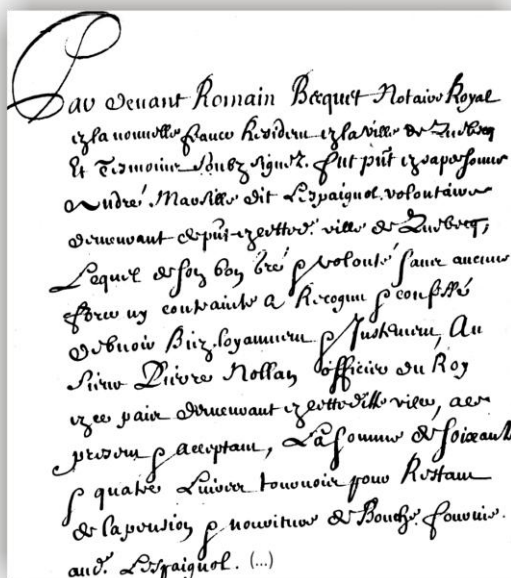 Par devant Romain Becquet Notaire Royal
en la nouvelle france Residem en la ville de Quebecq
Et Tesmoins soubz signez. fut pnt en sa personne
André Marsille dit Lespaignol, volontaire
demeurant depnt en cetted. ville de Quebecq,
Lequel de son bon gré & volonté sans aucune
force ny contrainte a Recognu & confessé
debvoir Bien loyaumem & Justemem, Au
Sieur Pierre Nollan officier du Roy
en ce pais demeurant en cetteditte ville, a ce
presem & acceptam, La somme de soixante
& quatre Livres tournois pour Restam
de la pension & nouriture de Bouche fournie
aud. Lespaignol. (...)